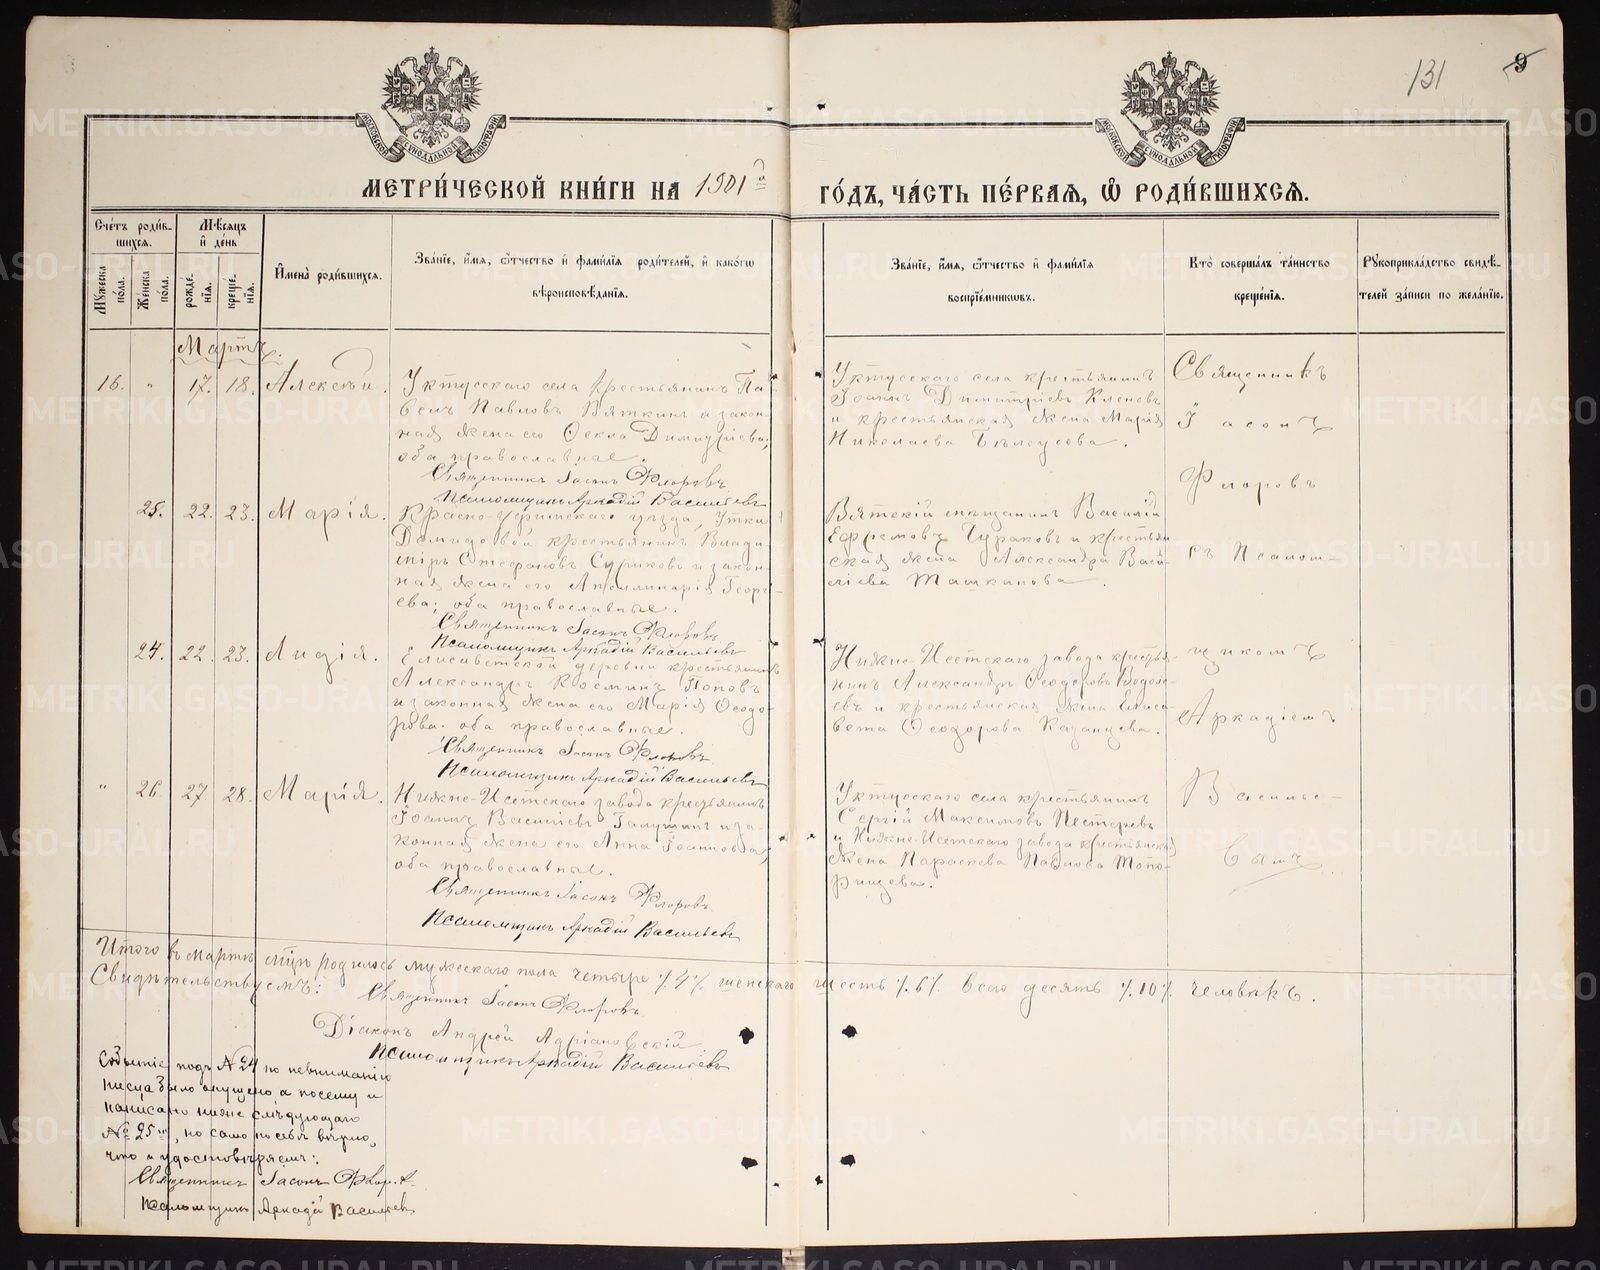 131
9
МОСКОВСКОЙ СѴНОДАЛЬНОЙ ТИПОГРАФІИ
МОСКОВСКОЙ СѴНОДАЛЬНОЙ ТИПОГРАФІИ
МЕТРИ́ЧЕСКОЙ КНИ́ГИ НА 1901й
ГО́ДЪ, ЧА́СТЬ ПЕ́РВАЯ, Ѡ҆ РОДИ́ВШИХСЯ.
Сче́тъ роди́в-
шихся.
Мѣ́сяцъ
и҆ де́нь
Мꙋ́жеска
по́ла.
Же́нска
по́ла.
рожде́-
нїя.
креще́-
нїя.
И҆мена̀ роди́вшихся.
Зва́нїе, и҆́мя, ѻ҆́тчество и҆ фами́лїѧ роди́телей, и҆ како́гѡ
вѣроисповѣ́данїя.
Зва́нїе, и҆́мя, ѻ҆́тчество и҆ фами́лїѧ
воспрїе́мникѡвъ.
Кто̀ соверша́лъ та́инство
креще́нїя.
Рꙋкоприкла́дство свидѣ́-
телей за́писи по жела́нїю.
Мартъ.
16. " 17. 18. Алексѣй.
Уктусскаго села крестьянинъ Па-
велъ Павловъ Вяткинъ и закон-
ная жена его Ѳекла Димитріева,
оба православные.
Священникъ Іасонъ Флоровъ
Псаломщикъ Аркадій Васильевъ
Уктусскаго села крестьянинъ
Іоаннъ Димитріевъ Кленовъ
и крестьянская жена Марія
Николаева Бѣлоусова.
Священникъ
Іасонъ
Флоровъ
25. 22. 23. Марія.
Красно-Уфимскаго уѣзда, Утки
Демидовой крестьянинъ Влади-
міръ Стефановъ Суриковъ и закон-
ная жена его Аполлинарія Георгі-
ева; оба православные.
Священникъ Іасонъ Флоровъ
Псаломщикъ Аркадій Васильевъ
Вятскій мѣщанинъ Василій
Ефремовъ Чураковъ и крестьян-
ская жена Александра Васи-
ліева Ташкинова.
съ Псалом-
24. 22. 23. Лидія.
Елисаветской деревни крестьянинъ
Александръ Косминъ Поповъ
и законная жена его Марія Ѳеодо-
рова. оба православные.
Священникъ Іасонъ Флоровъ
Псаломщикъ Аркадій Васильевъ
Нижне-Исетскаго завода крестья-
нинъ Александръ Ѳеодоровъ
и крестьянская жена Елиса-
вета Ѳеодорова Казанцева.
щикомъ
Аркадіемъ
" 26. 27 28. Марія.
Нижне-Исетскаго завода крестьянинъ
Іоаннъ Василіевъ Галушинъ и за-
конная жена его Анна Іоаннова,
оба православные.
Священникъ Іасонъ Флоровъ
Псаломщикъ Аркадій Васильевъ
Уктусскаго села крестьянинъ
Сергій Максимовъ Пестеревъ
и Нижне-Исетскаго завода крестьянская
жена Параскева Павлова Топо-
рищева.
Василье-
вымъ
Итого въ мартѣ м-цѣ родилось мужескаго пола четыре /.4/. женскаго шесть /.6/. Всего десять /.10/. человѣкъ.
Свидѣтельствуемъ:
Священникъ Іасонъ Флоровъ
Діаконъ Андрей Адріановскій
Псаломщикъ Аркадій Васильевъ
Событіе подъ № 24 по невниманію
писца было опущено, а посему и
написано ниже слѣдующаго
№ 25го, но само по себѣ вѣрно,
что и удостовѣряемъ:
Священникъ Іасонъ Флор.
Псаломщикъ Аркадій Васильевъ
METRIKI.GASO-URAL.RU